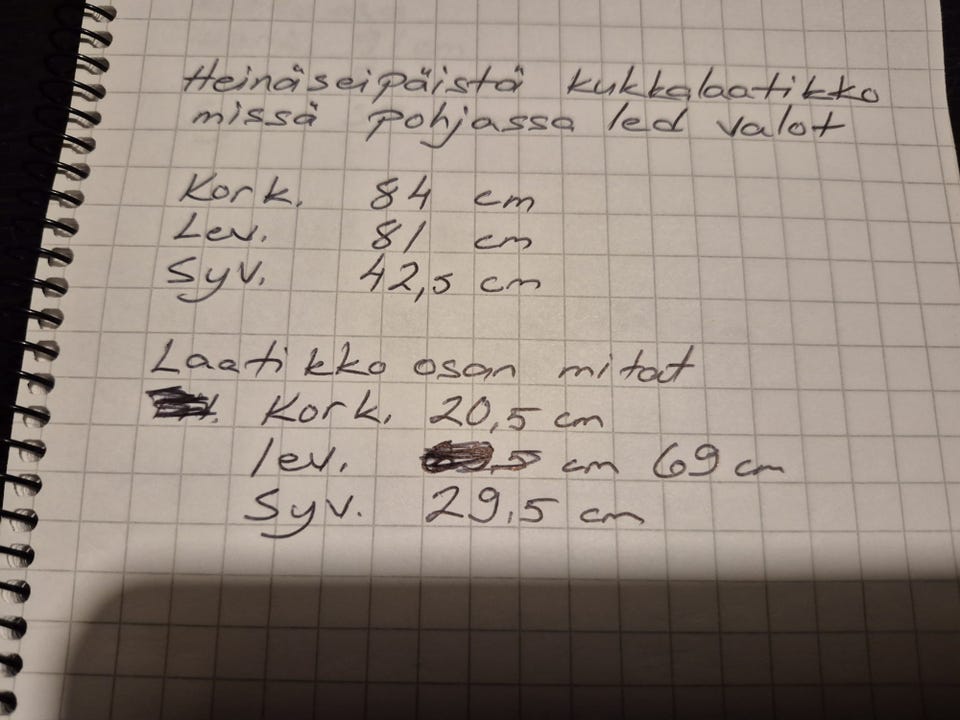 Heinäseipäistä kukkalaatikko
missä pohjassa led valot
Kork. 84 cm
Lev. 81 cm
Syv. 42,5 cm
Laatikko osan mitat
Kork. 20,5 cm
lev. cm 69 cm
Syv. 29,5 cm